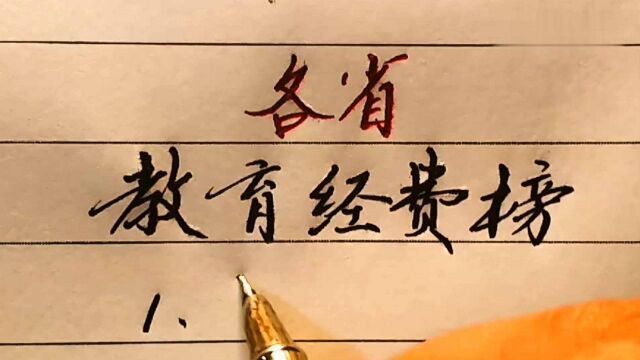 各省
教育经费榜
1、